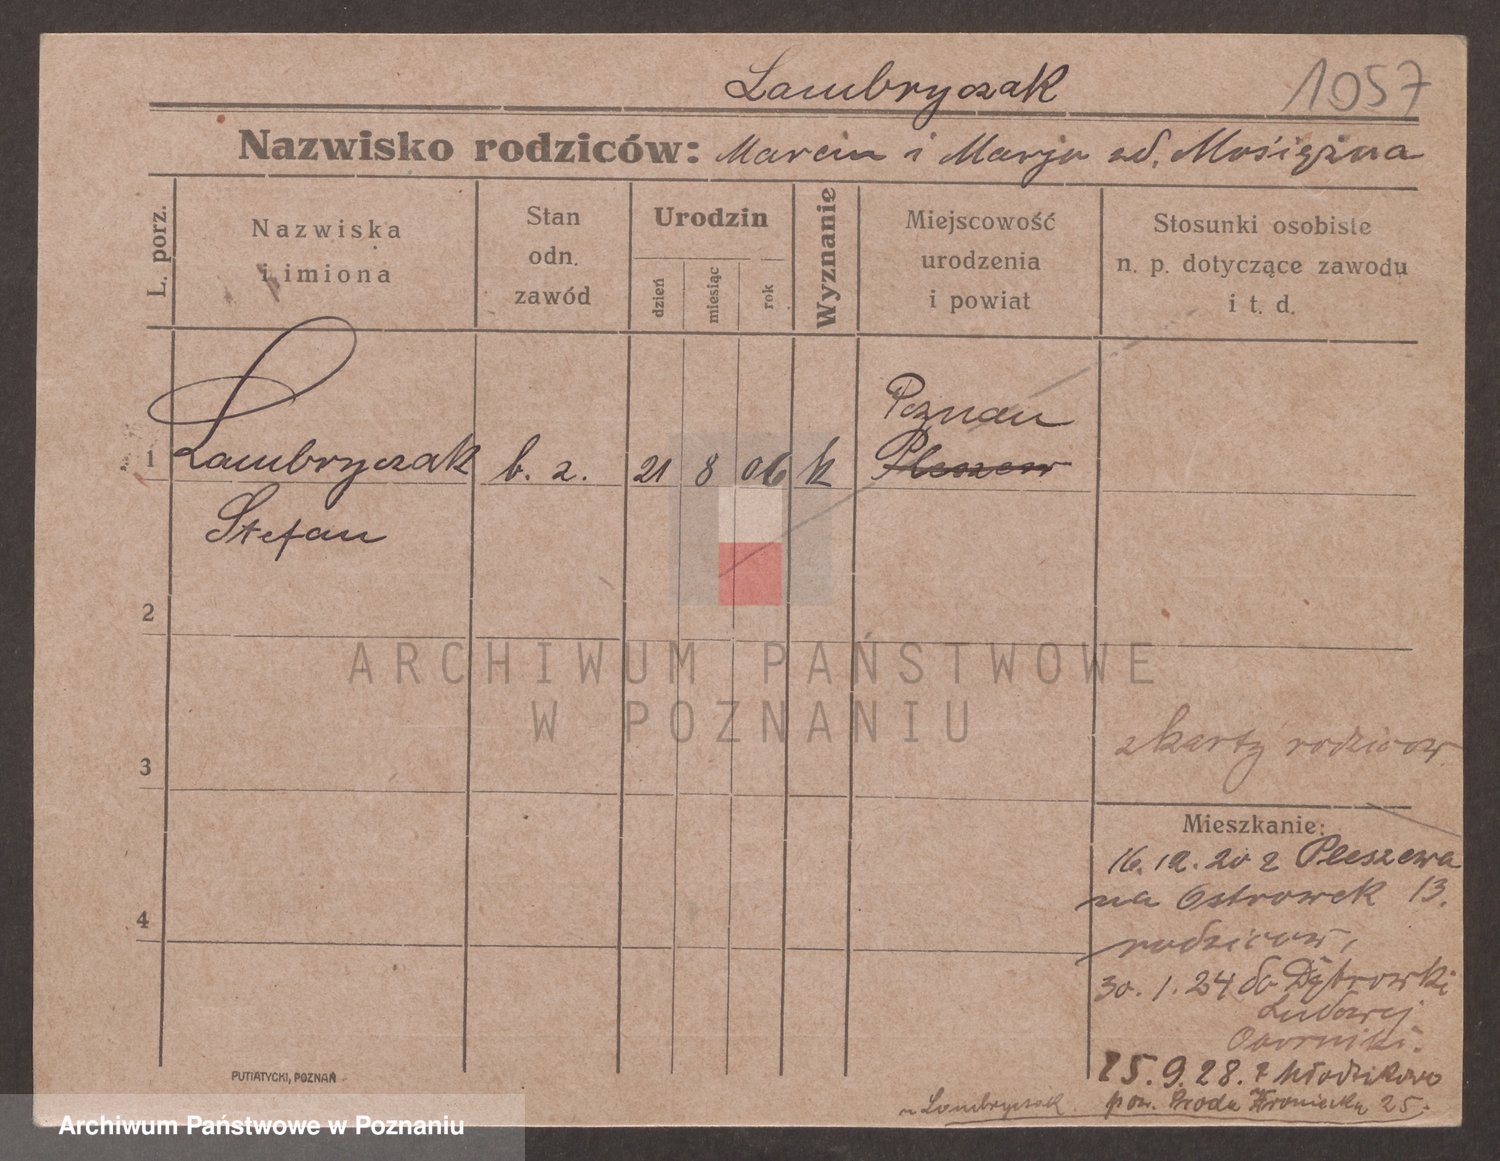 Lambryczak
1057
Nazwisko rodziców: Marcin i Marja od.
L. porz.
Nazwiska i imiona
Stan odn. zawód
Urodzin
dzień miesiąc rok
Wyznanie
Miejscowość urodzenia i powiat
Stosunki osobiste n. p. dotyczące zawodu i t. d.
Poznau
1 Lambryczak b. z. 21 8 06 k Pleszew
Stefan
2
ARCHIWUM PAŃSTWOWE
W POZNANIU
z karty rodzicow
3
Mieszkanie:
16.12.20 z Pleszewa
na Ostrowek 13.
4
rodzicow,
30.1.24 do Dąbrowki
Ludowej
Oborniki.
25.9.28. z Młodzikowo
PUTIATYCKI, POZNAŃ
u Lambryczak pow. Sroda 25.
Archiwum Państwowe w Poznaniu